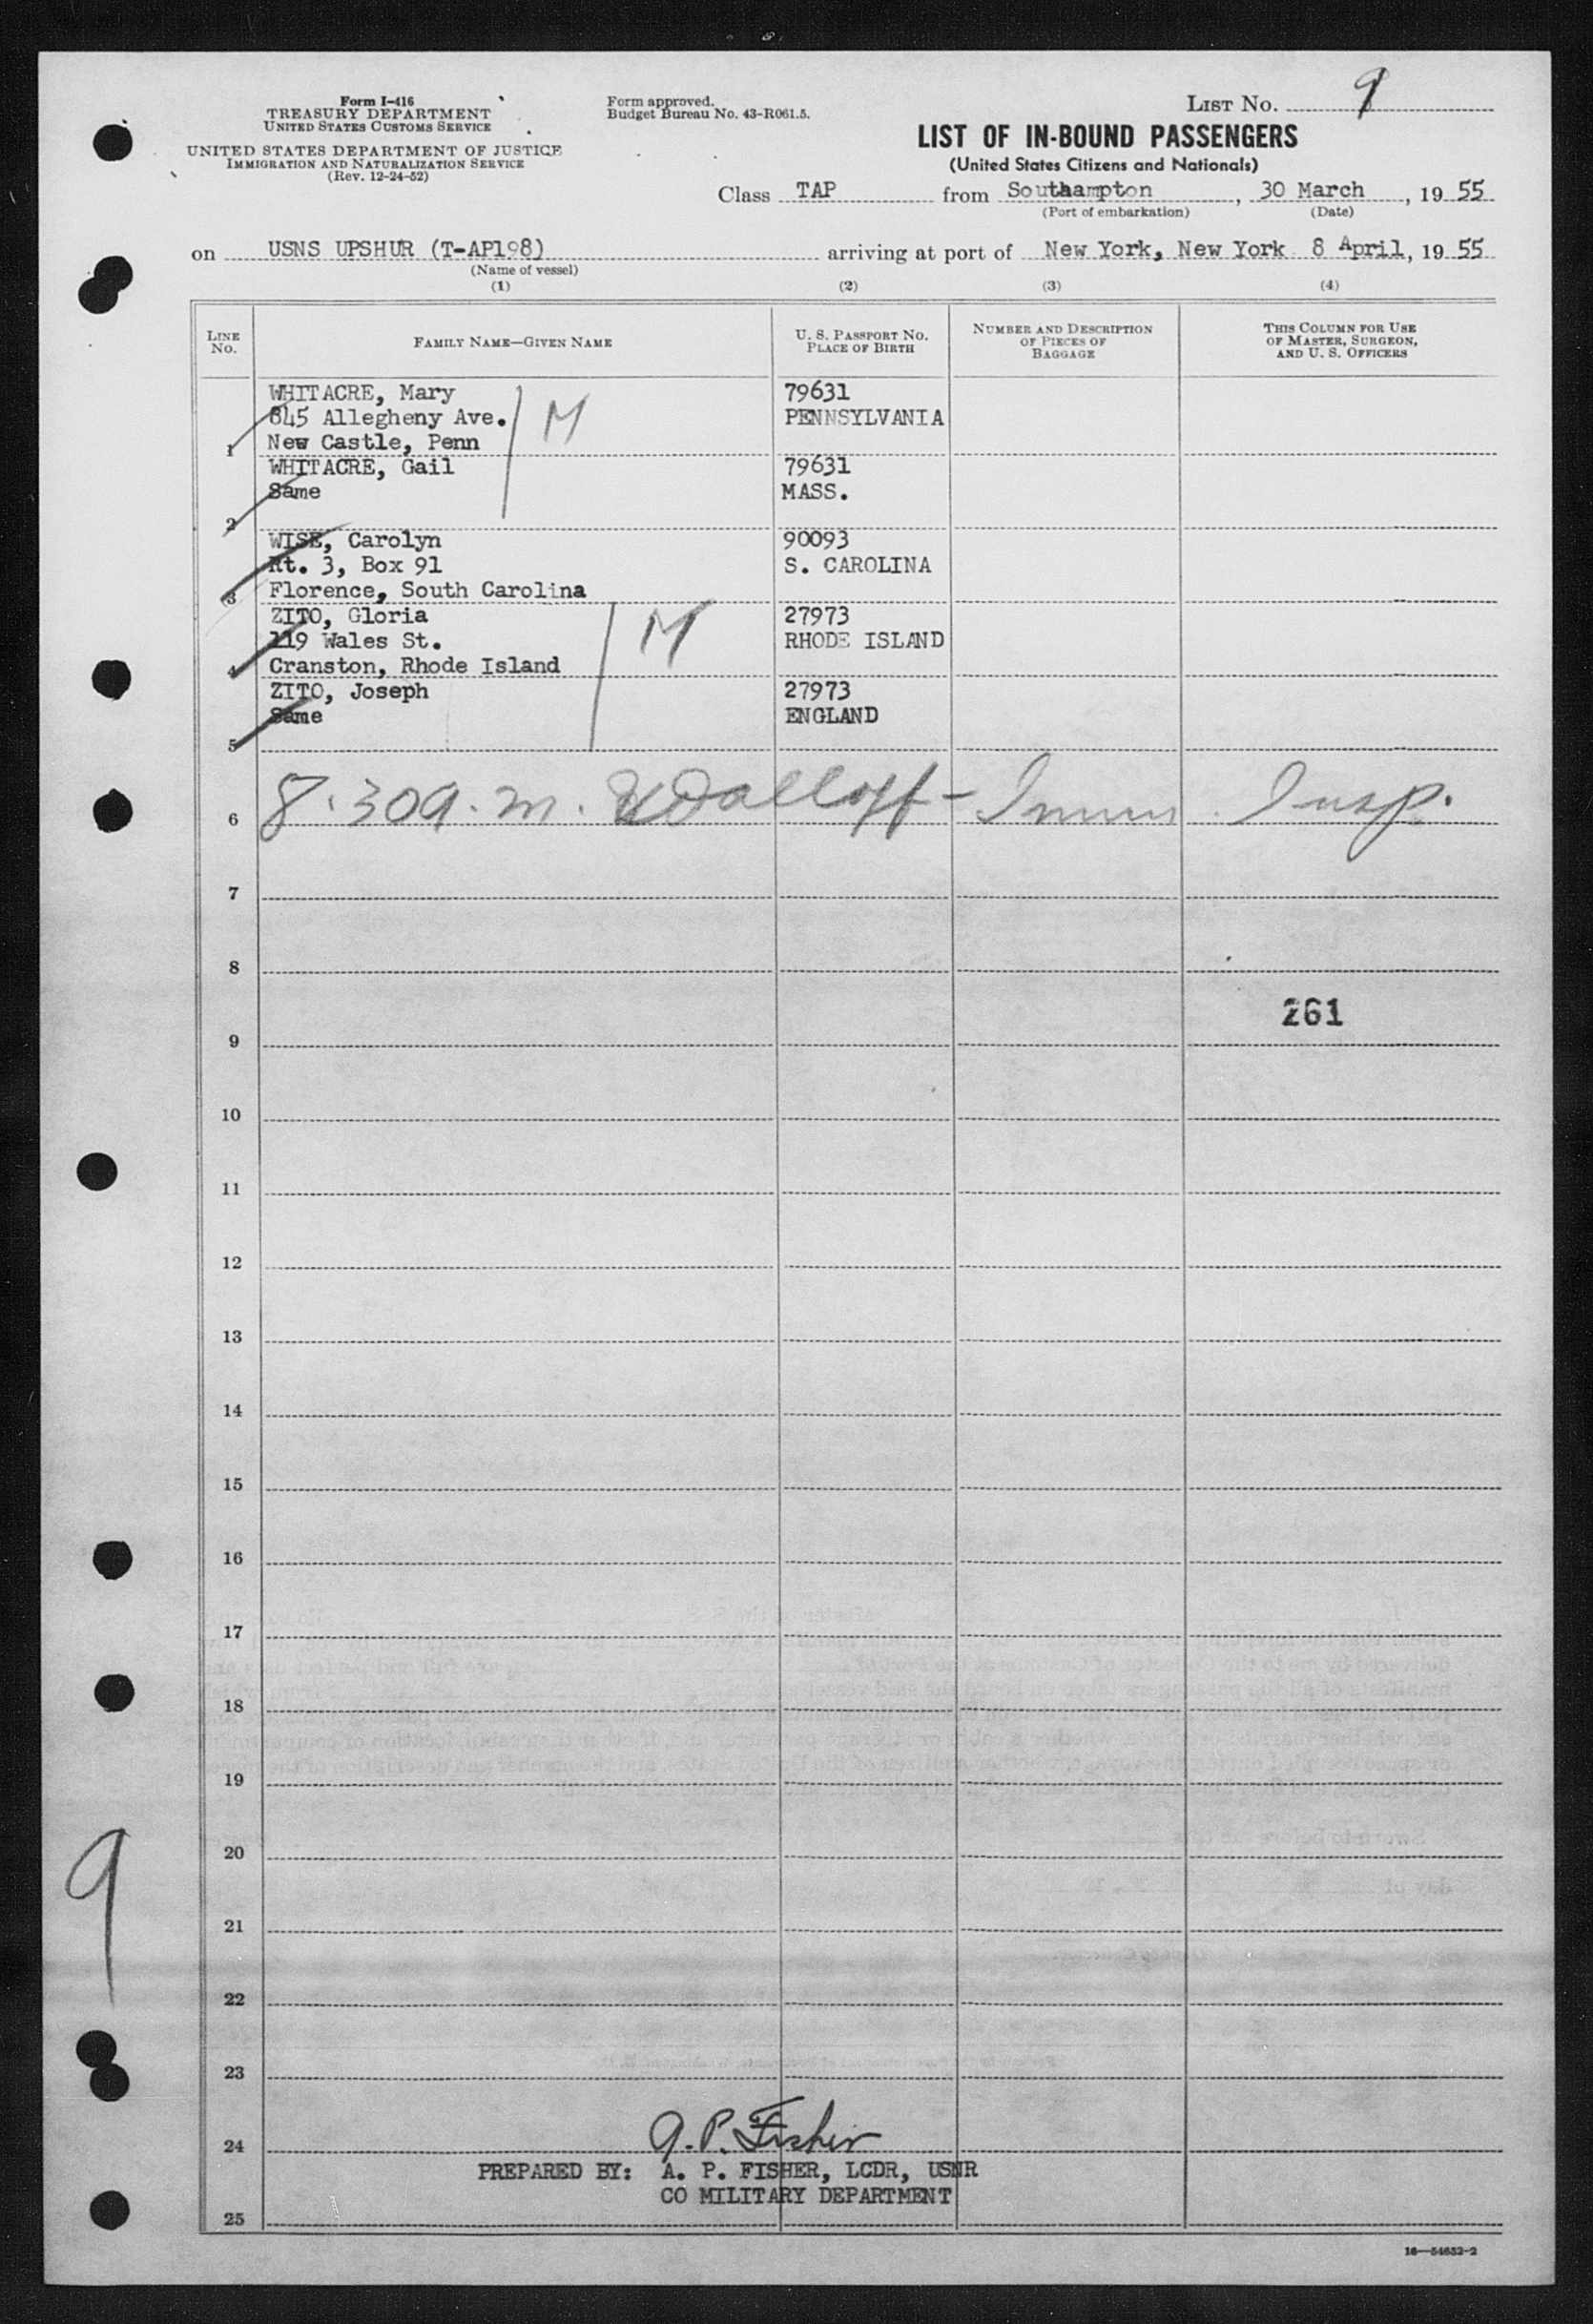 Form I-416
TREASURY DEPARTMENT
UNITED STATES CUSTOMS SERVICE
UNITED STATES DEPARTMENT OF JUSTICE
IMMIGRATION AND NATURALIZATION SERVICE
(Rev. 12-24-52)
Form approved.
Budget Bureau No. 43-R061.5.
LIST No. 9
LIST OF IN-BOUND PASSENGERS
(United States Citizens and Nationals)
Class TAP from Southampton, 30 March, 19 55
(Port of embarkation) (Date)
on USNS UPSHUR (T-AP198) arriving at port of New York, New York 8 April, 19 55
(Name of vessel)
(1) (2) (3) (4)
LINE No.
FAMILY NAME—GIVEN NAME
U. S. PASSPORT No.
PLACE OF BIRTH
NUMBER AND DESCRIPTION
OF PIECES OF
BAGGAGE
THIS COLUMN FOR USE
OF MASTER, SURGEON,
AND U. S. OFFICERS
WHITACRE, Mary 79631
845 Allegheny Ave. M PENNSYLVANIA
1 New Castle, Penn
WHITACRE, Gail 79631
Same MASS.
2
WISE, Carolyn 90093
Rt. 3, Box 91 S. CAROLINA
3 Florence, South Carolina
ZITO, Gloria 27973
119 Wales St. M RHODE ISLAND
4 Cranston, Rhode Island
ZITO, Joseph 27973
Same ENGLAND
5
6 8.30 a.m. Immis Insp.
7
8
261
9
10
11
12
13
14
15
16
17
18
19
20
9
21
22
23
24 A. P. Fisher
PREPARED BY: A. P. FISHER, LCDR, USNR
CO MILITARY DEPARTMENT
25
16—54652-2